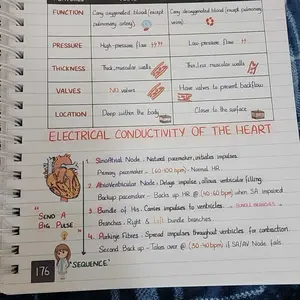 FUNCTION Carry oxygenated blood (except pulmonary artery). Carry deoxygenated blood (except pulmonary veins).
PRESSURE High-pressure flow Low pressure flow
THICKNESS Thick, muscular walls Thin, less muscular walls
VALVES NO valves Have valves to prevent backflow
LOCATION Deep within the body Closer to the surface
ELECTRICAL CONDUCTIVITY OF THE HEART
1. Sinoatrial Node: Natural pacemaker, initiates impulses.
Primary pacemaker - (60-100 bpm) - Normal HR
2. Atrioventricular Node: Delays impulse, allows ventricular filling.
Backup pacemaker - Backs up HR @ (40-60 bpm) when SA impaired
3. Bundle of His: Carries impulses to ventricles.
Branches: Right & Left bundle branches.
4. Purkinje Fibres: Spread impulses throughout ventricles for contraction.
Second Back up - Takes over @ (30-40 bpm) if SA/AV Node fails.
"SEND A
BIG PULSE"
176
"SEQUENCE"